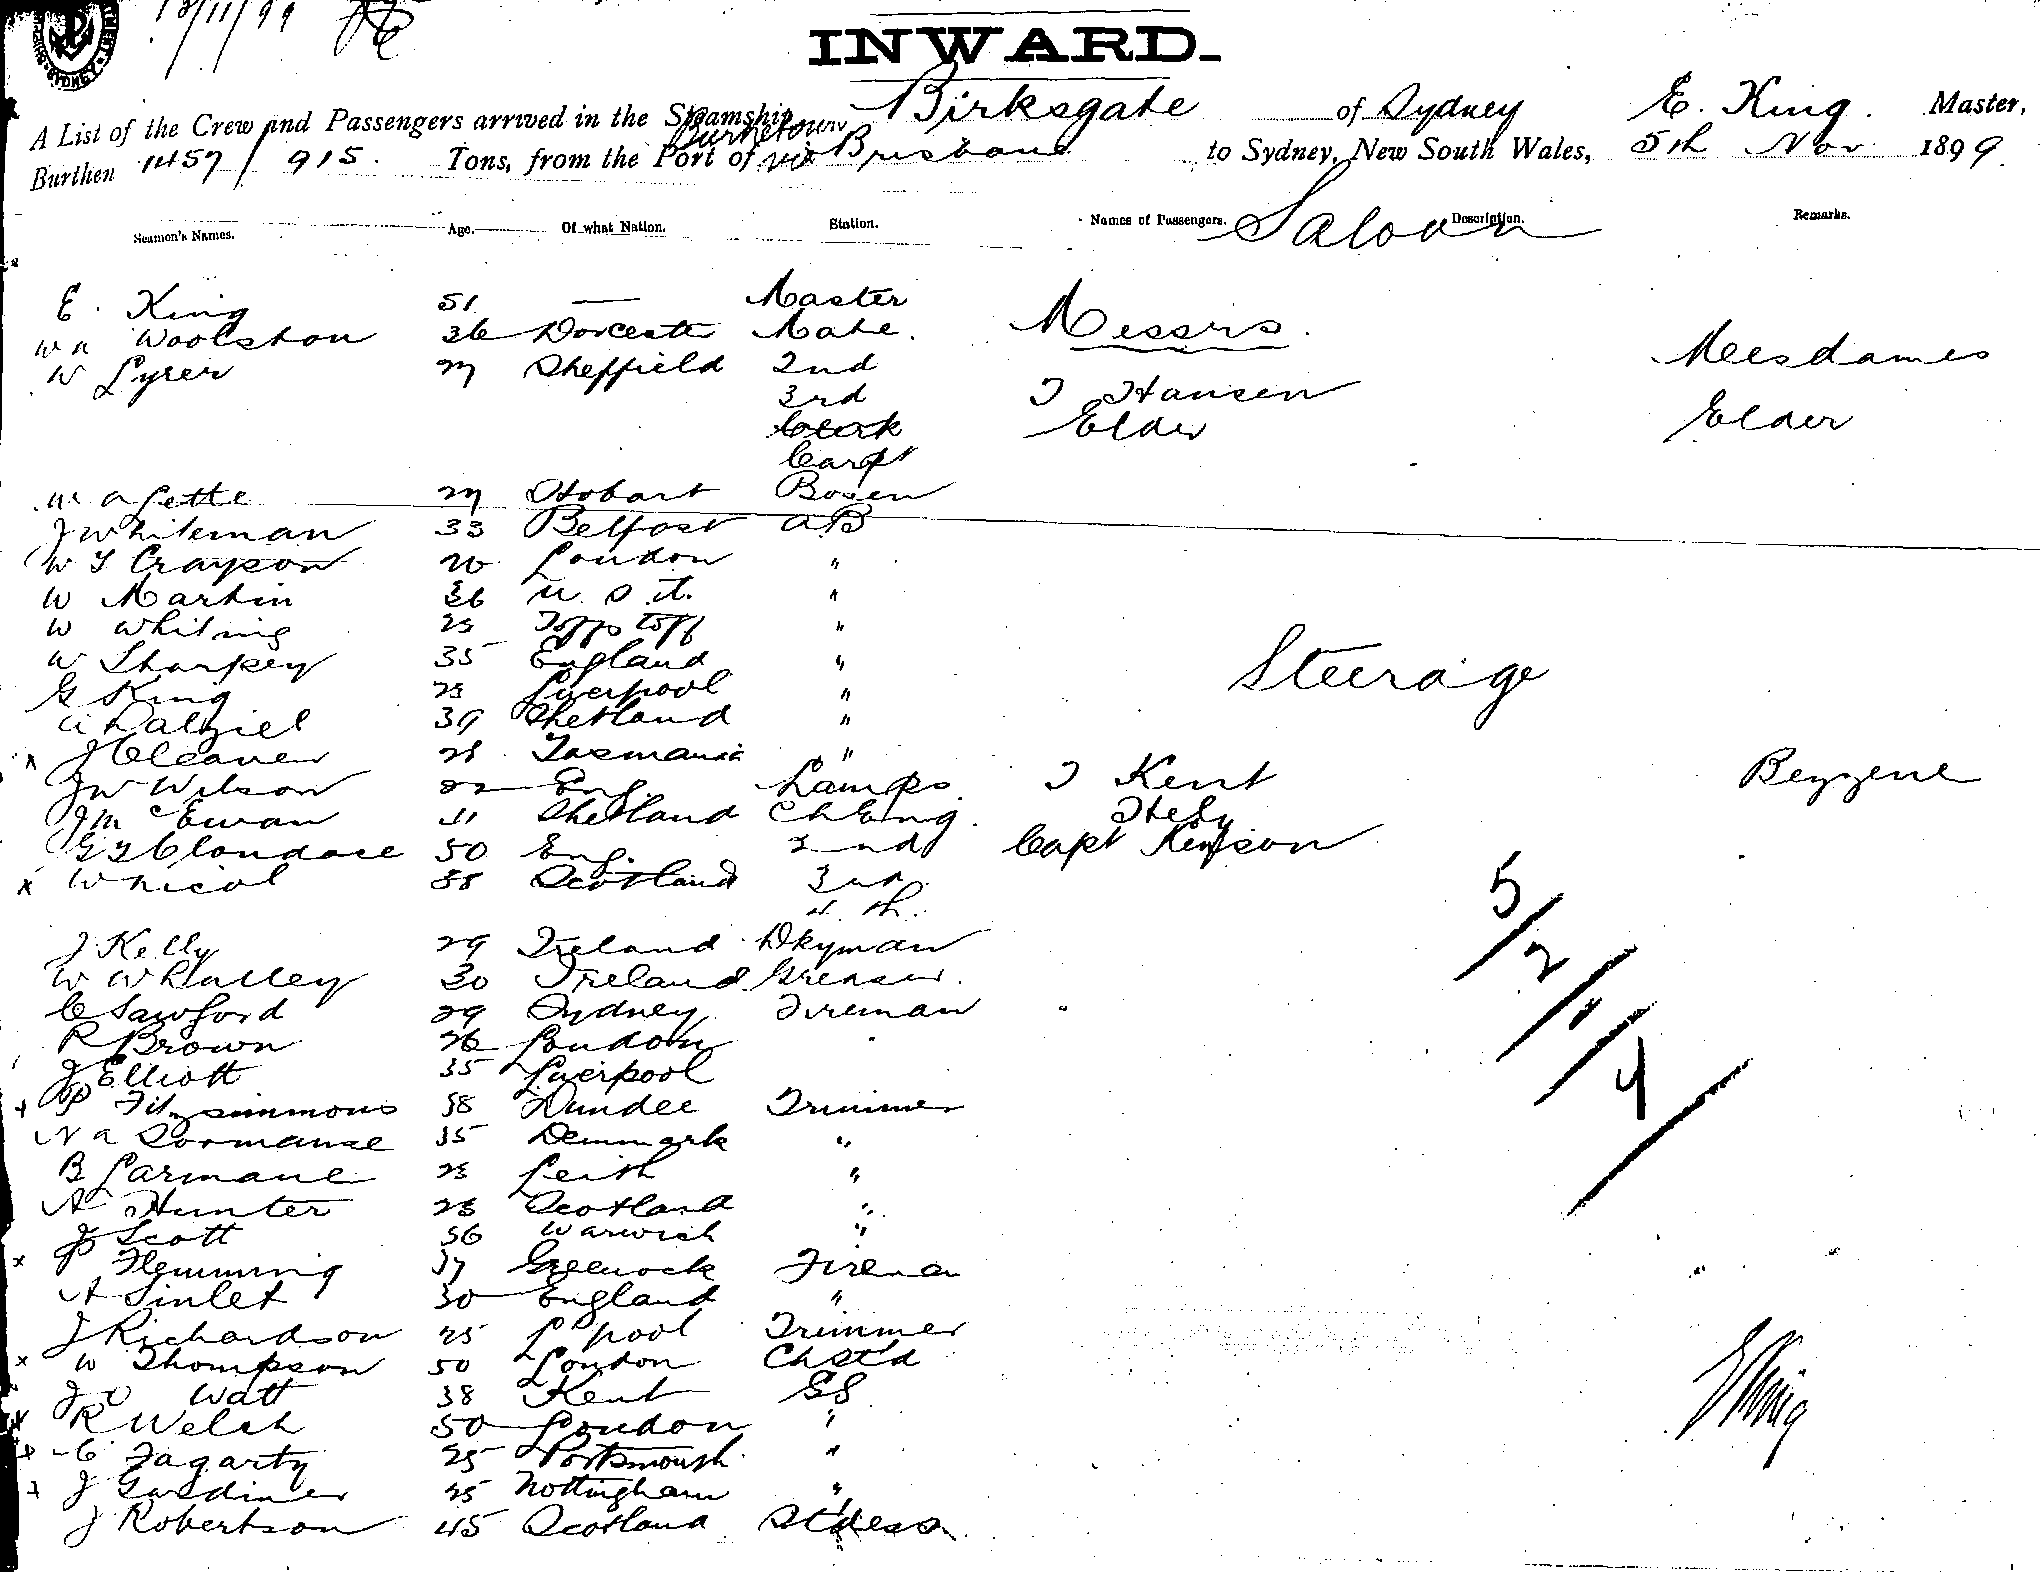 13/11/99
SYDNEY
INWARD.
A List of the Crew and Passengers arrived in the Steamship Birksgate of Sydney E. King. Master,
Burnetown
Burthen 1457/915. Tons, from the Port of via Brisbane to Sydney, New South Wales, 5th Nov 1899.
Seamen's Names. Age. Of what Nation. Station. Names of Passengers. Description. Remarks.
Saloon
E. King 51 — Master
Messrs.
W A Woolston 36 Dorcester Mate.
Meesdames
W Lyrer 27 Sheffield 2nd
3rd T Hansen
Clerk Elder Elder
Carpt
W A Lette 27 Hobart Bosen
J Whiteman 33 Belfast AB
W T Crayson 20 London "
W Martin 36 U.S.A. "
W Whiting 25 "
W Sharpey 35 England "
Steerage
G King 25 Liverpool "
A Dalziel 39 Shetland "
x J Cleaver 28 Tasmania "
J W Wilson 22 Eng. Lamps. T Kent Bezzene
J McEwan 41 Shetland Ch Eng.
50 Eng. 2nd Capt
x W Nicol 38 Scotland 3rd
4th.
5/2/1/4/
J Kelly 29 Ireland Dkyman
W W 30 Ireland Greaser.
C Sawford 29 Sydney Fireman
R Brown 26 London
J Elliott 35 Liverpool
x P Fitzsimmons 38 Dundee Trimmer
N A 35 Denmark "
B Larmane 25 Leith "
A Hunter 28 Scotland "
J Scott 36 Warwick "
x P Flemming 37 Greenock Fireman
A Sinlet 30 England "
J Richardson 25 L'pool Trimmer
x W Thompson 50 London Ch St'd
J Watt 38 Kent GS
x R Welch 50 London "
x C Fagarty 25 Portsmouth "
x J Gardiner 25 Nottingham "
J Robertson 45 Scotland St'dess
E King